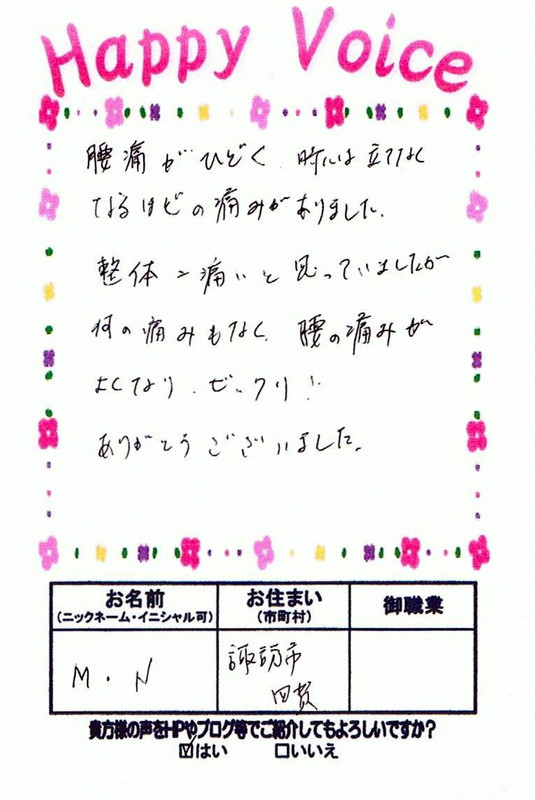 Happy Voice
腰痛がひどく、時には立てなく
なるほどの痛みがありました。
整体=痛いと思っていましたが
何の痛みもなく、腰の痛みが
よくなり、ビックリ!
ありがとうございました。
お名前
(ニックネーム・イニシャル可)
お住まい
(市町村)
御職業
M.N
諏訪市
四賀
貴方様の声をHPやブログ等でご紹介してもよろしいですか?
☑はい □いいえ